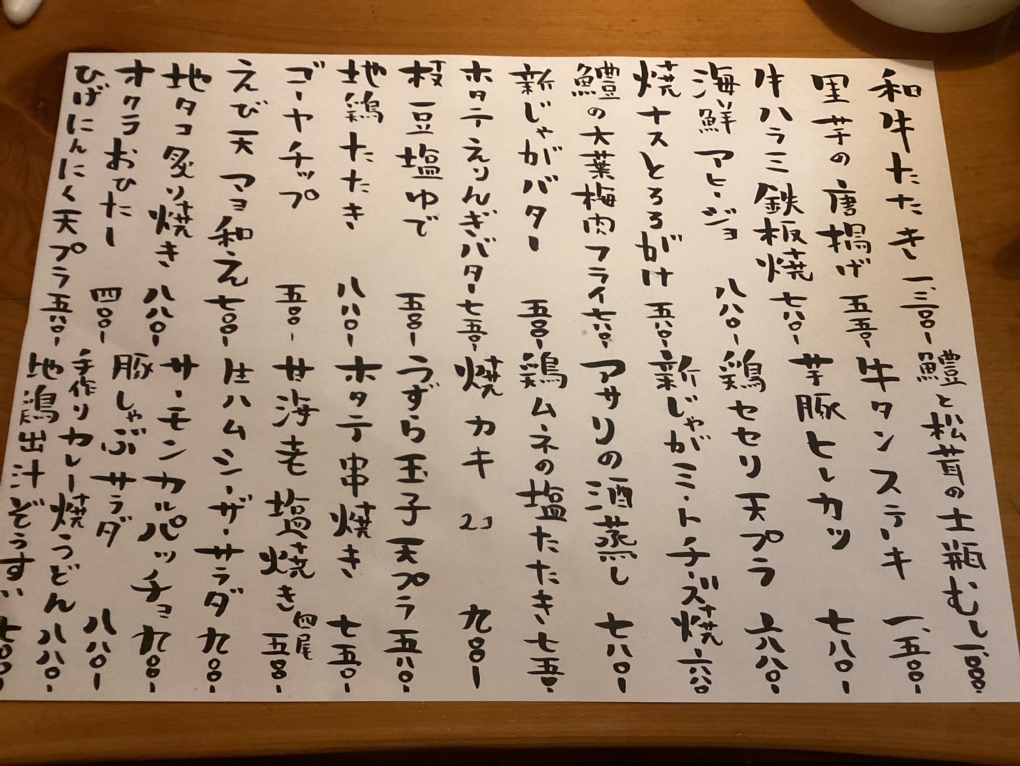 和牛たたき 一、三〇〇-
里芋の唐揚げ 五五〇-
牛ハラミ鉄板焼 七八〇-
海鮮アヒージョ 八八〇-
焼ナスとろろがけ 五八〇-
鱧の大葉梅肉フライ 七八〇-
新じゃがバター 五〇〇-
ホタテえりんぎバター 七五〇-
枝豆塩ゆで 五〇〇-
地鶏たたき 八八〇-
ゴーヤチップ 五〇〇-
えび天マヨ和え 七〇〇-
地タコ炙り焼き 八八〇-
オクラおひたし 四〇〇-
ひげにんにく天プラ 五八〇-
鱧と松茸の土瓶むし 一、〇〇〇-
牛タンステーキ 一、五〇〇-
芋豚ヒレカツ 七八〇-
鶏セセリ天プラ 六八〇-
新じゃがミートチーズ焼 六八〇
アサリの酒蒸し 七八〇-
鶏ムネの塩たたき 七五〇-
焼カキ 2コ 九〇〇-
うずら玉子天プラ 五八〇-
ホタテ串焼き 七五〇-
甘海老塩焼き 四尾 五〇〇-
生ハムシーザーサラダ 九〇〇-
サーモンカルパッチョ 九〇〇-
豚しゃぶサラダ 八八〇-
手作りカレー焼うどん 八八〇-
地鶏出汁ぞうすい 七〇〇-